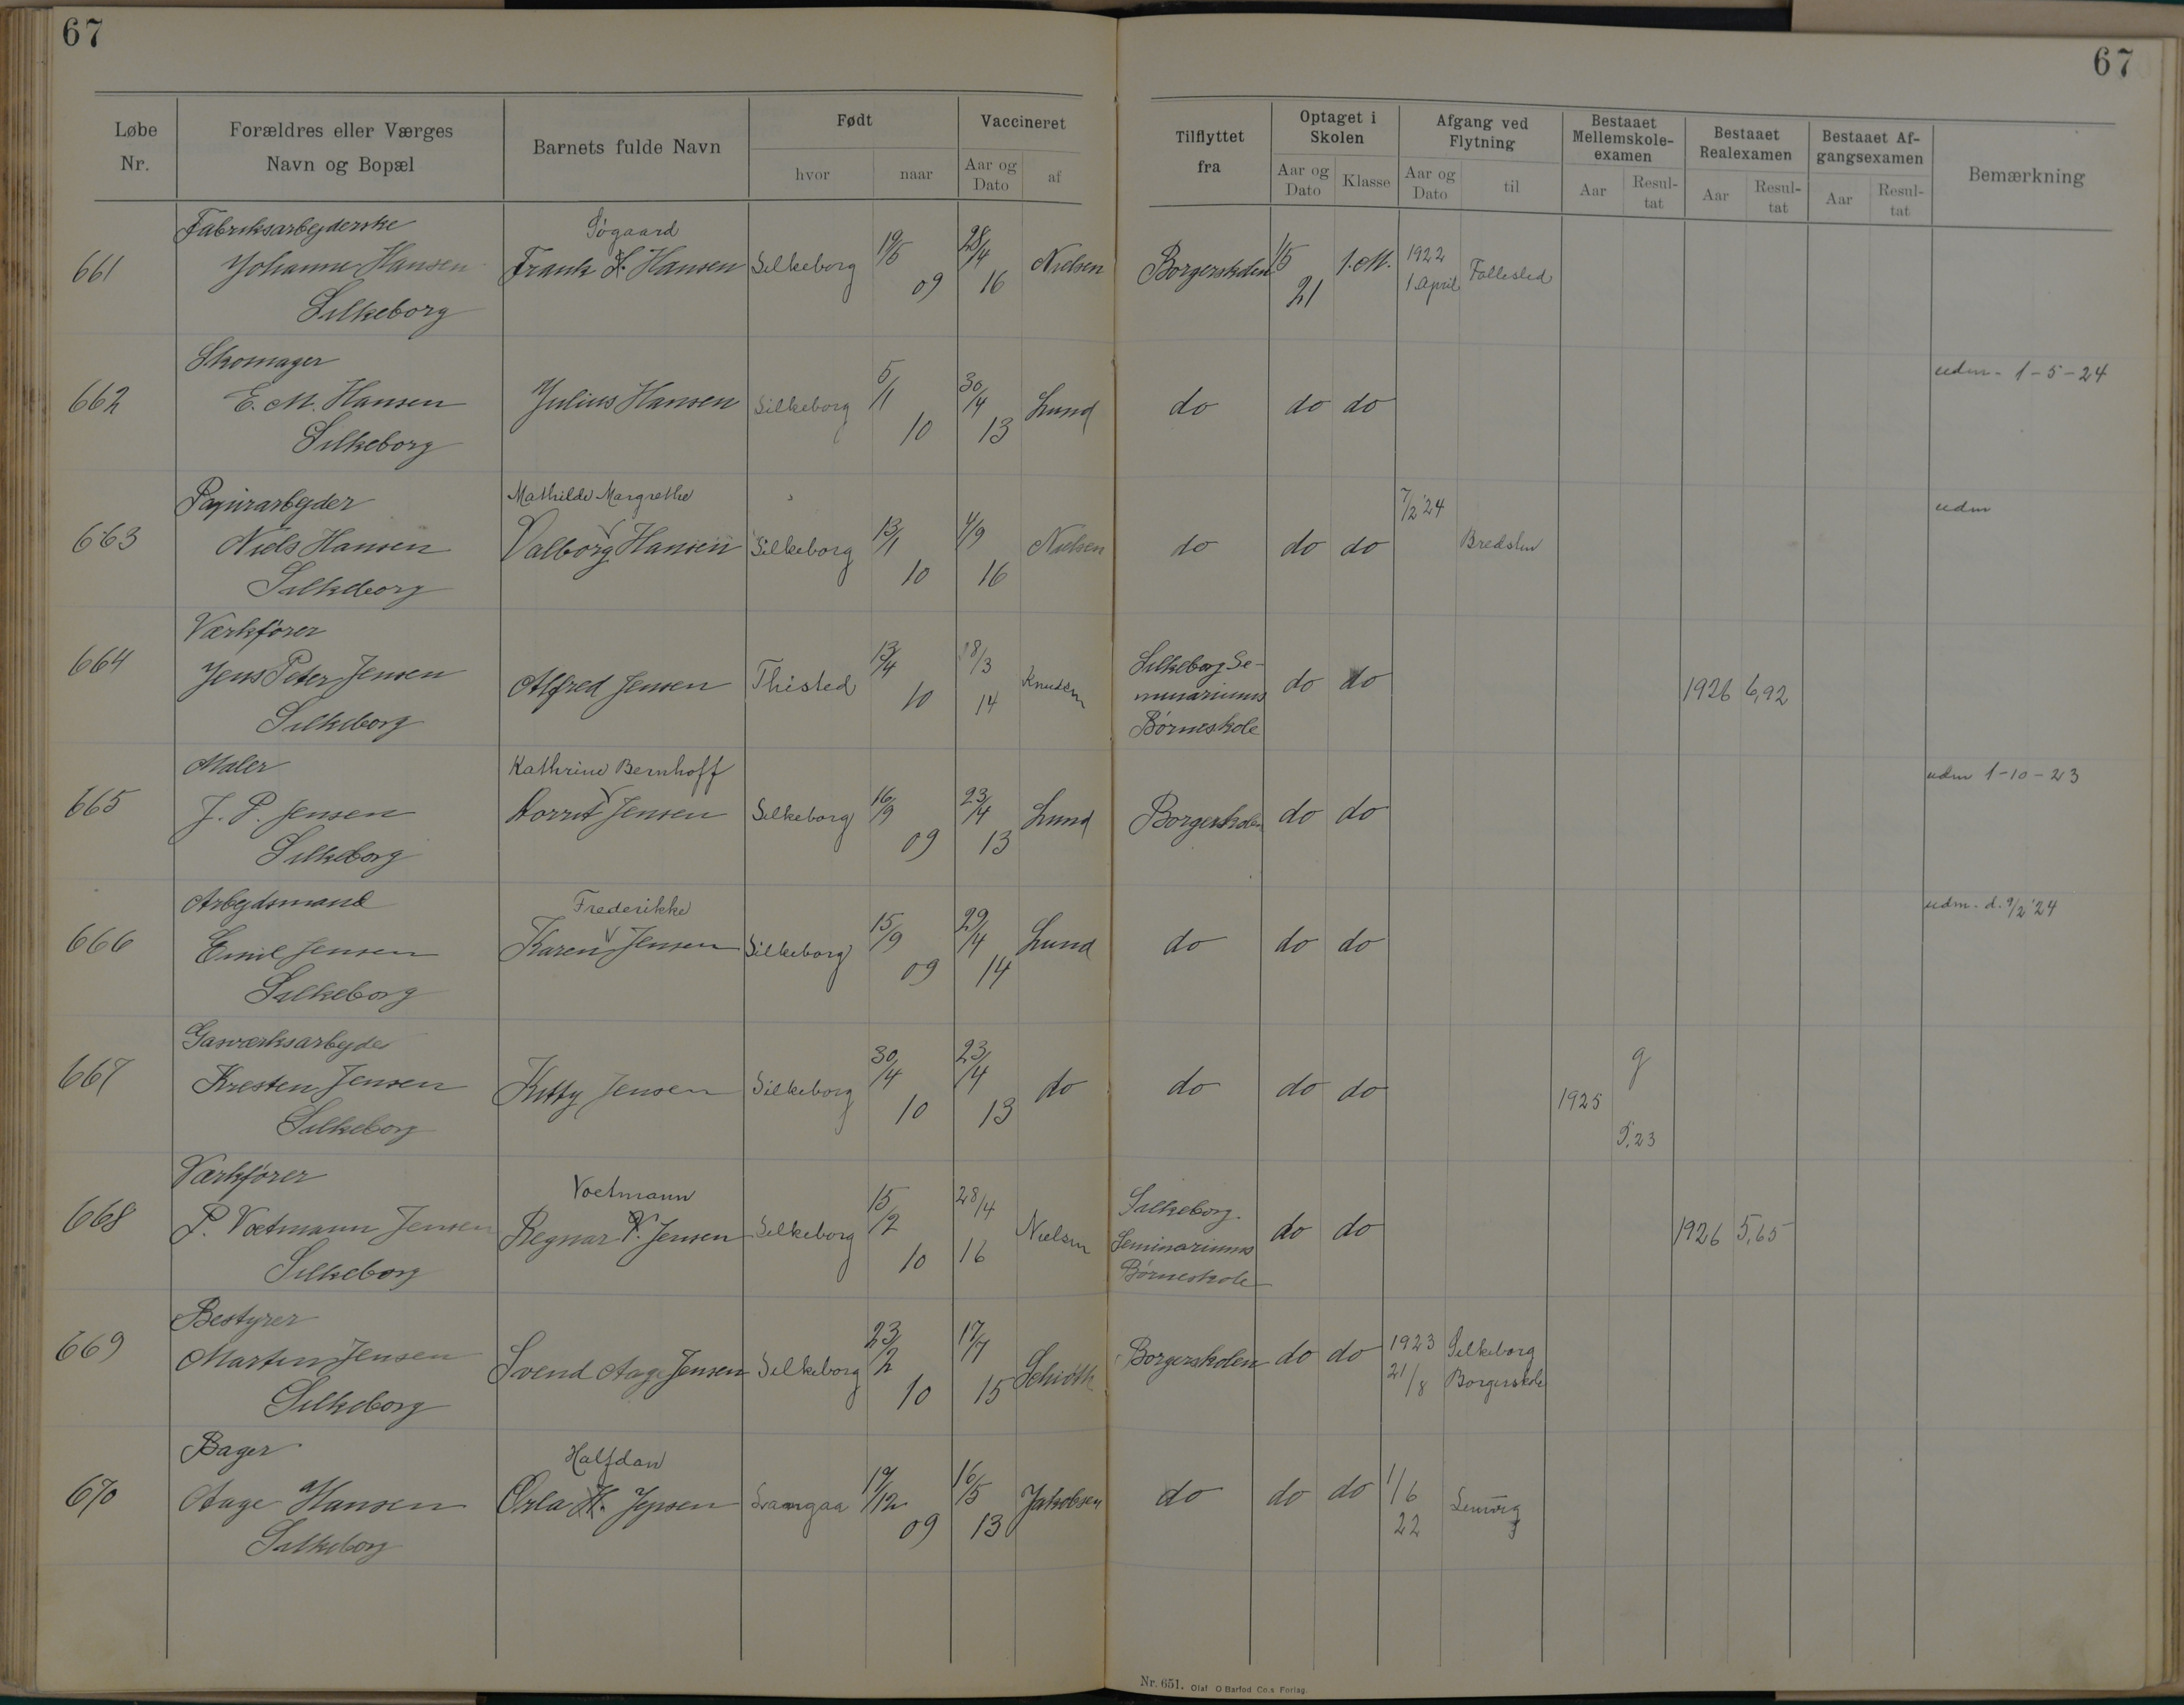 67
67
Løbe Nr.
Forældres eller Værges Navn og Bopæl
Barnets fulde Navn
Født
hvor
naar
Vaccineret
Aar og Dato
af
Tilflyttet fra
Optaget i Skolen
Aar og Dato
Klasse
Afgang ved Flytning
Aar og Dato
til
Bestaaet Mellemskole-examen
Aar
Resul-tat
Bestaaet Realexamen
Aar
Resul-tat
Bestaaet Af-gangsexamen
Aar
Resul-tat
Bemærkning
Fabriksarbejderske
Søgaard
661 Johanne Hansen Frank S. Hansen Silkeborg 19/5 09 28/4 16 Nielsen Borgerskolen 1/5 21 1.M. 1922 1 April Follested
Silkeborg
Skomager
udm - 1-5-24
662 E. M. Hansen Julius Hansen Silkeborg 5/1 10 30/4 13 Lund do do do
Silkeborg
Papirarbejder
Mathilde Margrethe
7/2 '24
udm
663 Niels Hansen Valborg Hansen Silkeborg 13/1 10 4/9 16 Nielsen do do do Bredsten
Silkeborg
Værkfører
664 Jens Peter Jensen Alfred Jensen Thisted 13/4 10 18/3 14 Knudsen Silkeborg Se-
minariums
Børneskole do do 1926 6,92
Silkeborg
Maler
Kathrine Bernhoff
udm 1-10-23
665 J. P. Jensen Dorrit Jensen Silkeborg 16/9 09 23/4 13 Lund Borgerskolen do do
Silkeborg
Arbejdsmand
Frederikke
udm. d. 9/2 '24
666 Emil Jensen Karen Jensen Silkeborg 15/9 09 29/4 14 Lund do do do
Silkeborg
Gasværksarbejder
667 Kresten Jensen Kitty Jensen Silkeborg 30/4 10 23/4 13 do do do do 1925 g 5,23
Silkeborg
Værkfører
Voetmann
668 P. Voetmann Jensen Regnar V. Jensen Silkeborg 15/2 10 28/4 16 Nielsen Silkeborg
Seminariums
Børneskole do do 1926 5,65
Silkeborg
Bestyrer
669 Martin Jensen Svend Aage Jensen Silkeborg 23/2 10 17/7 15 Schiøth Borgerskolen do do 1923 21/8 Silkeborg
Borgerskole
Silkeborg
Bager
Halfdan
670 Aage Hansen Orla H. Jepsen 19/12 09 16/5 13 Jakobsen do do do 1/6 22 Lemvig
Silkeborg
Nr. 651. Olaf O Barfod Co.s Forlag.